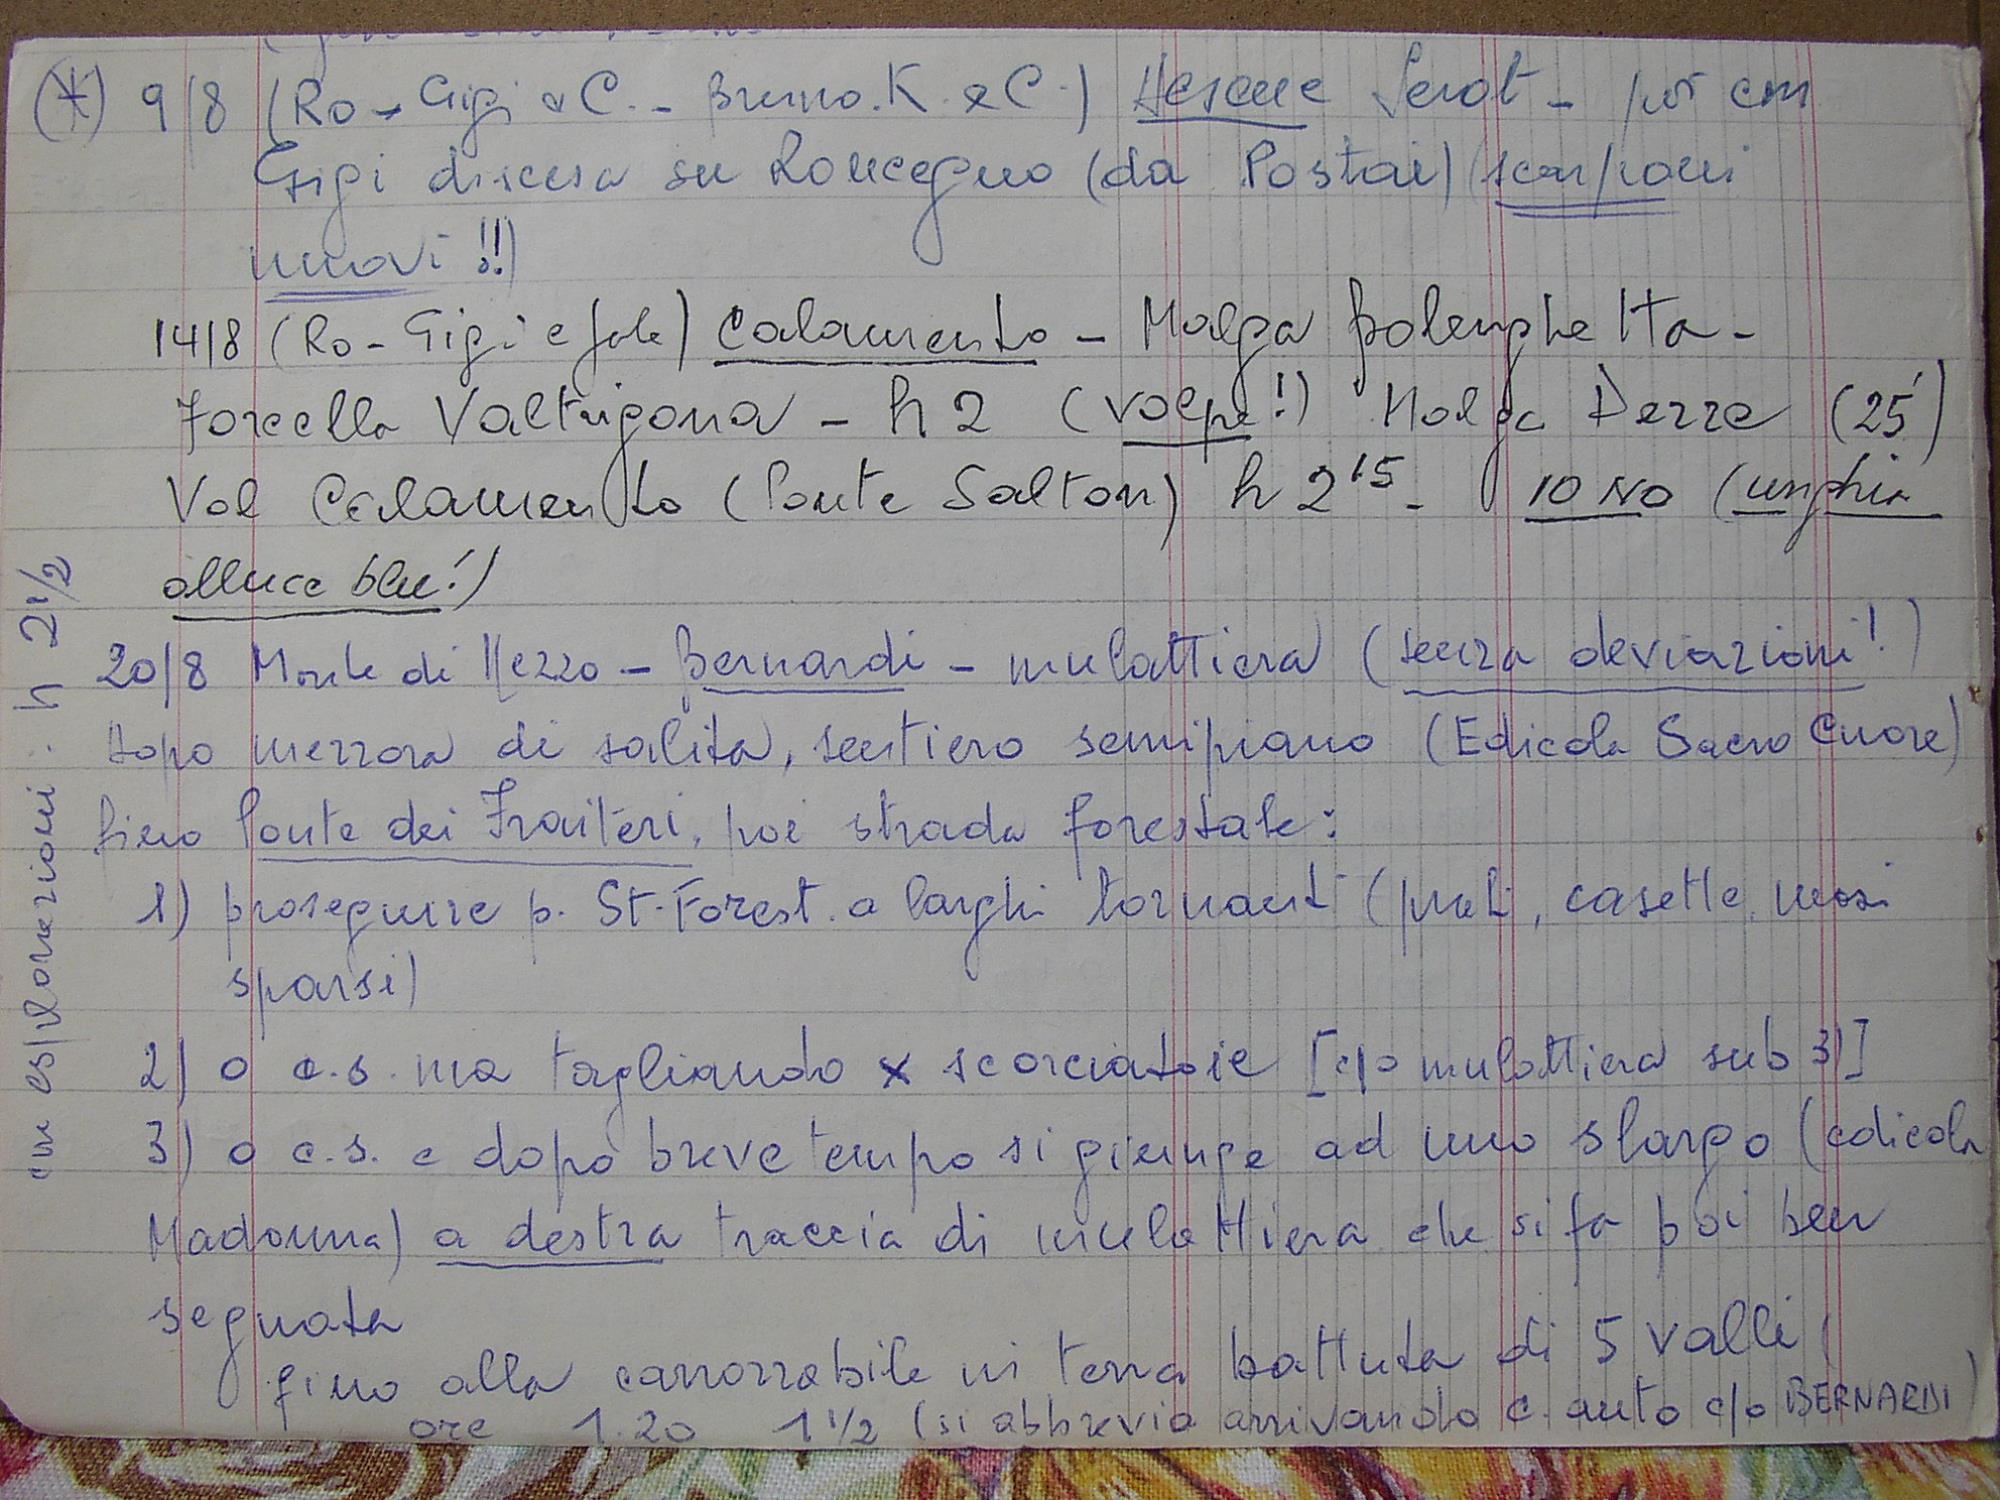 (*) 9/8 (Ro - Gigi e C. - Bruno. K. e C.) Serot - poi con
Gigi discesa su Roncegno (da Postai) (scarponi
nuovi!!)
14/8 (Ro - Gigi e Jole) Calamento - Malga Bolenghetta -
Forcella Valtrigona - h 2 (volpe!) Malga Dezze (25')
Val Calamento (Ponte Salton) h 2 15 - IO NO (unghia
alluce blu!)
20/8 Monte di Mezzo - Bernardi - mulattiera (senza deviazioni!)
dopo mezzora di salita, sentiero semipiano (Edicola Sacro Cuore)
fino Ponte dei Fraiteri, poi strada forestale:
1) proseguire p. St. Forest. a larghi tornanti (prati, casette, masi
sparsi)
2) o c.s. ma tagliando x scorciatoie [c/o mulattiera sub 3)]
3) o c.s. e dopo breve tempo si giunge ad uno slargo (edicola
Madonna) a destra traccia di mulattiera che si fa poi ben
segnata
fino alla carrozzabile in terra battuta di 5 valli (
ore 1.20 1 1/2 (si abbrevia arrivando c. auto c/o BERNARDI)
con esplorazioni: h 2 1/2